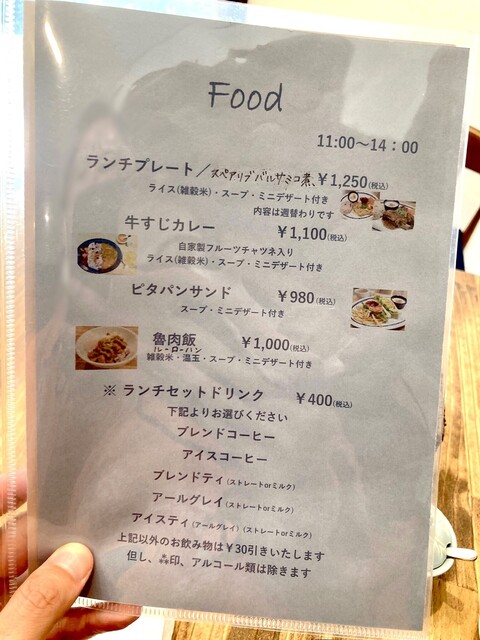 Food
11:00〜14:00
ランチプレート／スペアリブバルサミコ煮、￥1,250(税込)
ライス(雑穀米)・スープ・ミニデザート付き
内容は週替わりです
牛すじカレー ￥1,100(税込)
自家製フルーツチャツネ入り
ライス(雑穀米)・スープ・ミニデザート付き
ピタパンサンド ￥980(税込)
スープ・ミニデザート付き
魯肉飯 ￥1,000(税込)
ルーローハン
雑穀米・温玉・スープ・ミニデザート付き
※ ランチセットドリンク ￥400(税込)
下記よりお選びください
ブレンドコーヒー
アイスコーヒー
ブレンドティ(ストレートorミルク)
アールグレイ(ストレートorミルク)
アイスティ(アールグレイ)(ストレートorミルク)
上記以外のお飲み物は￥30引きいたします
但し、⁂印、アルコール類は除きます